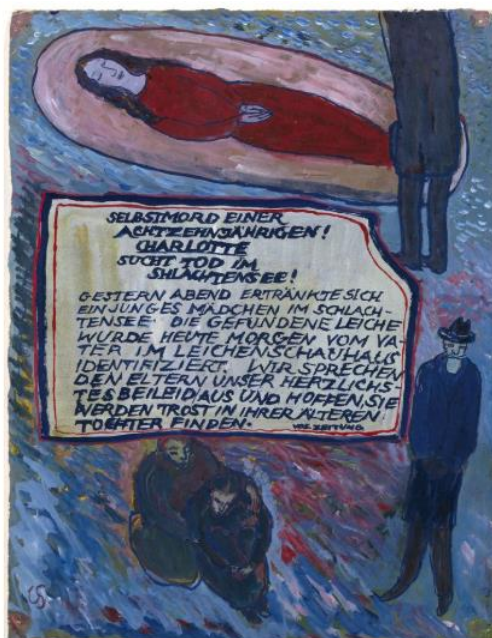 SELBSTMORD EINER
ACHTZEHNJÄHRIGEN!
CHARLOTTE
SUCHT TOD IM
SHLACHTENSEE!
GESTERN ABEND ERTRÄNKTE SICH
EIN JUNGES MÄDCHEN IM SCHLACH-
TENSEE. DIE GEFUNDENE LEICHE
WURDE HEUTE MORGEN VOM VA-
TER IM LEICHENSCHAUHAUS
IDENTIFIZIERT. WIR SPRECHEN
DEN ELTERN UNSER HERZLICHS-
TES BEILEID AUS UND HOFFEN, SIE
WERDEN TROST IN IHRER ÄLTEREN
TOCHTER FINDEN.
ZEITUNG
CS